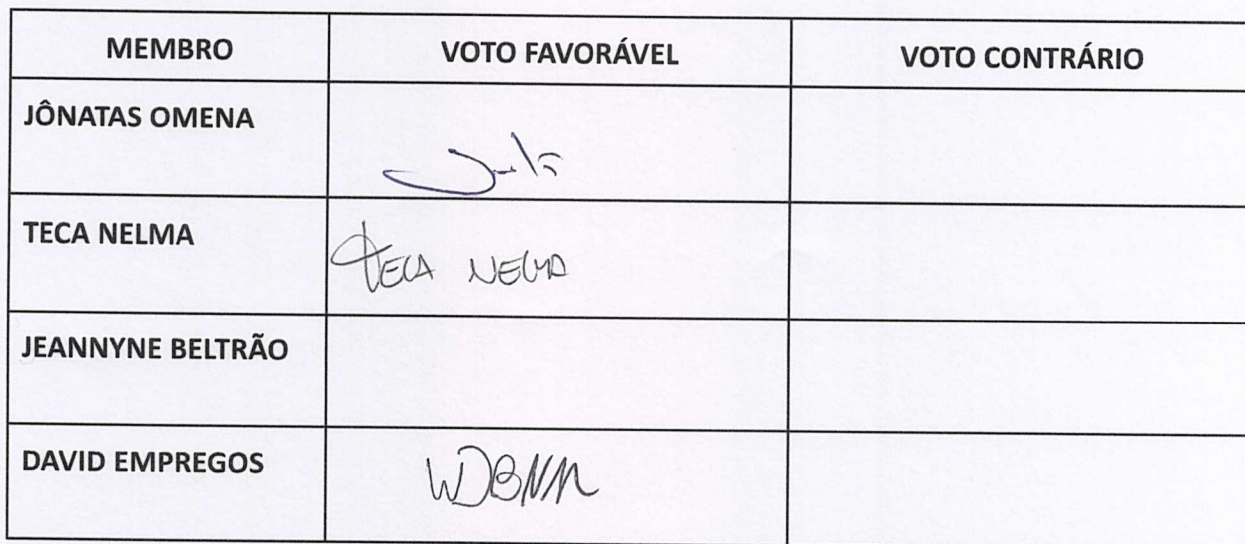 MEMBRO VOTO FAVORÁVEL VOTO CONTRÁRIO
JÔNATAS OMENA
TECA NELMA
TECA NELMA
JEANNYNE BELTRÃO
DAVID EMPREGOS